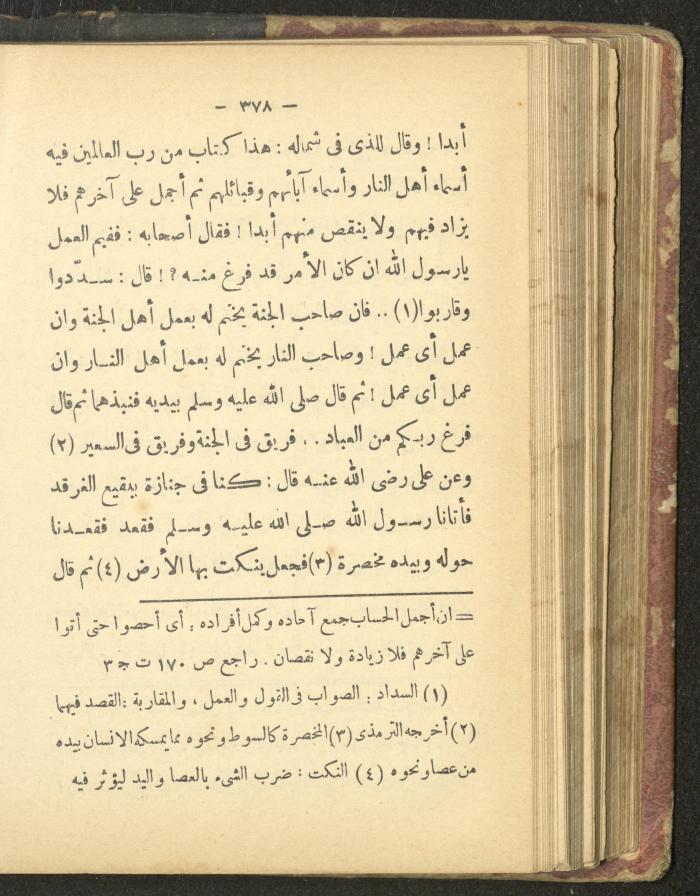 — ٣٧٨ —
أبدا ! وقال للذى فى شماله : هذا كتاب من رب العالمين فيه
أسماء أهل النار وأسماء آبائهم وقبائلهم ثم أجمل على آخرهم فلا
يزاد فيهم ولا ينقص منهم أبدا ! فقال أصحابه : ففيم العمل
يارسول الله ان كان الأمر قد فرغ منه ؟! قال : سدّدوا
وقاربوا(١) .. فان صاحب الجنة يختم له بعمل أهل الجنة وان
عمل أى عمل ! وصاحب النار يختم له بعمل أهل النار وان
عمل أى عمل ! ثم قال صلى الله عليه وسلم بيديه فنبذهما ثم قال
فرغ ربكم من العباد .. فريق فى الجنة وفريق فى السعير (٢)
وعن على رضى الله عنه قال : كنا فى جنازة ببقيع الغرقد
فأتانا رسول الله صلى الله عليه وسلم فقعد فقعدنا
حوله وبيده مخصرة (٣) فجعل ينكت بها الأرض (٤) ثم قال
= ان أجمل الحساب جمع آحاده وكمل أفراده : أى أحصوا حتى أتوا
على آخرهم فلا زيادة ولا نقصان . راجع ص ١٧٠ ت ج ٣
(١) السداد : الصواب فى القول والعمل ، والمقاربة : القصد فيهما
(٢) أخرجه الترمذى (٣) المخصرة كالسوط ونحوه مما يمسكه الانسان بيده
من عصا ونحوه (٤) النكت : ضرب الشىء بالعصا واليد ليؤثر فيه